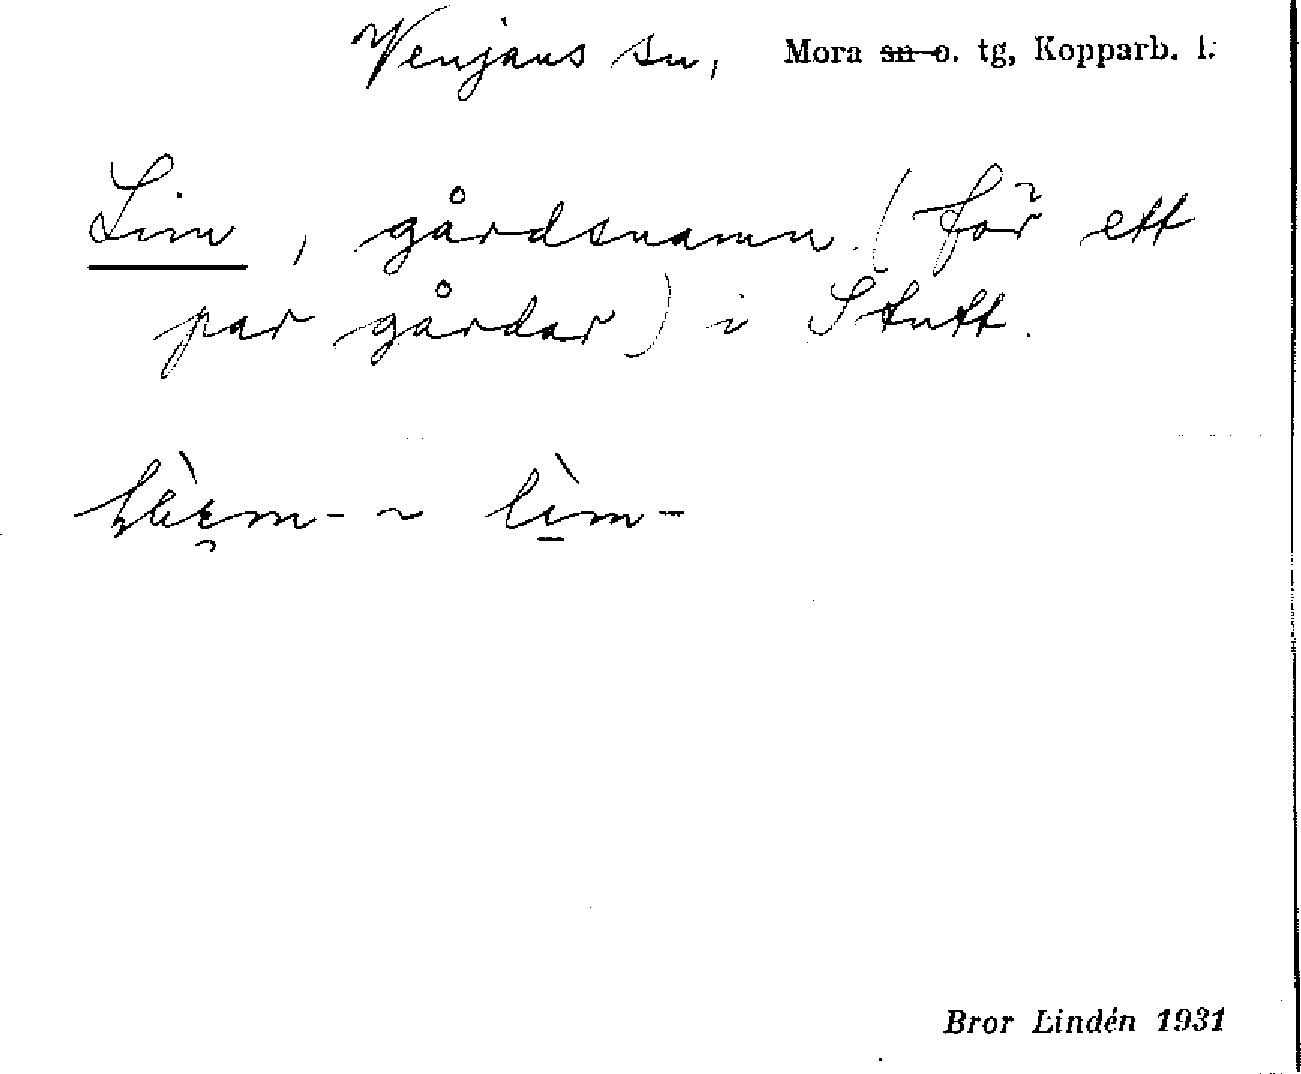 Venjans sn, Mora sn o. tg, Kopparb. l.
Lim, gårdsnamn (för ett
par gårdar) i Stutt.
lìm-
Bror Lindén 1931